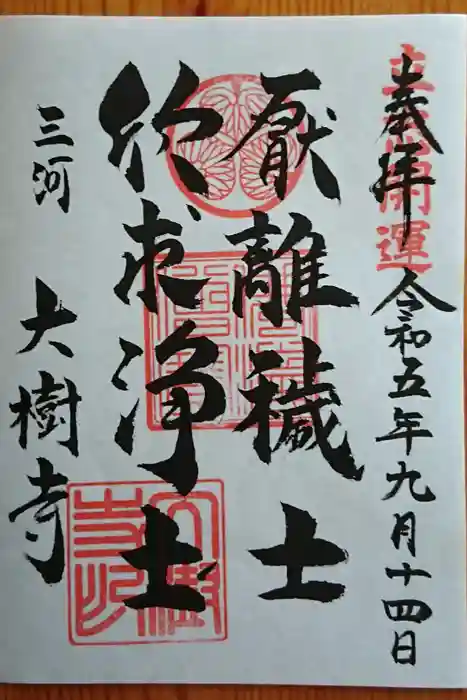 奉拝 令和五年九月十四日
厭離穢土
欣求浄土
三河 大樹寺